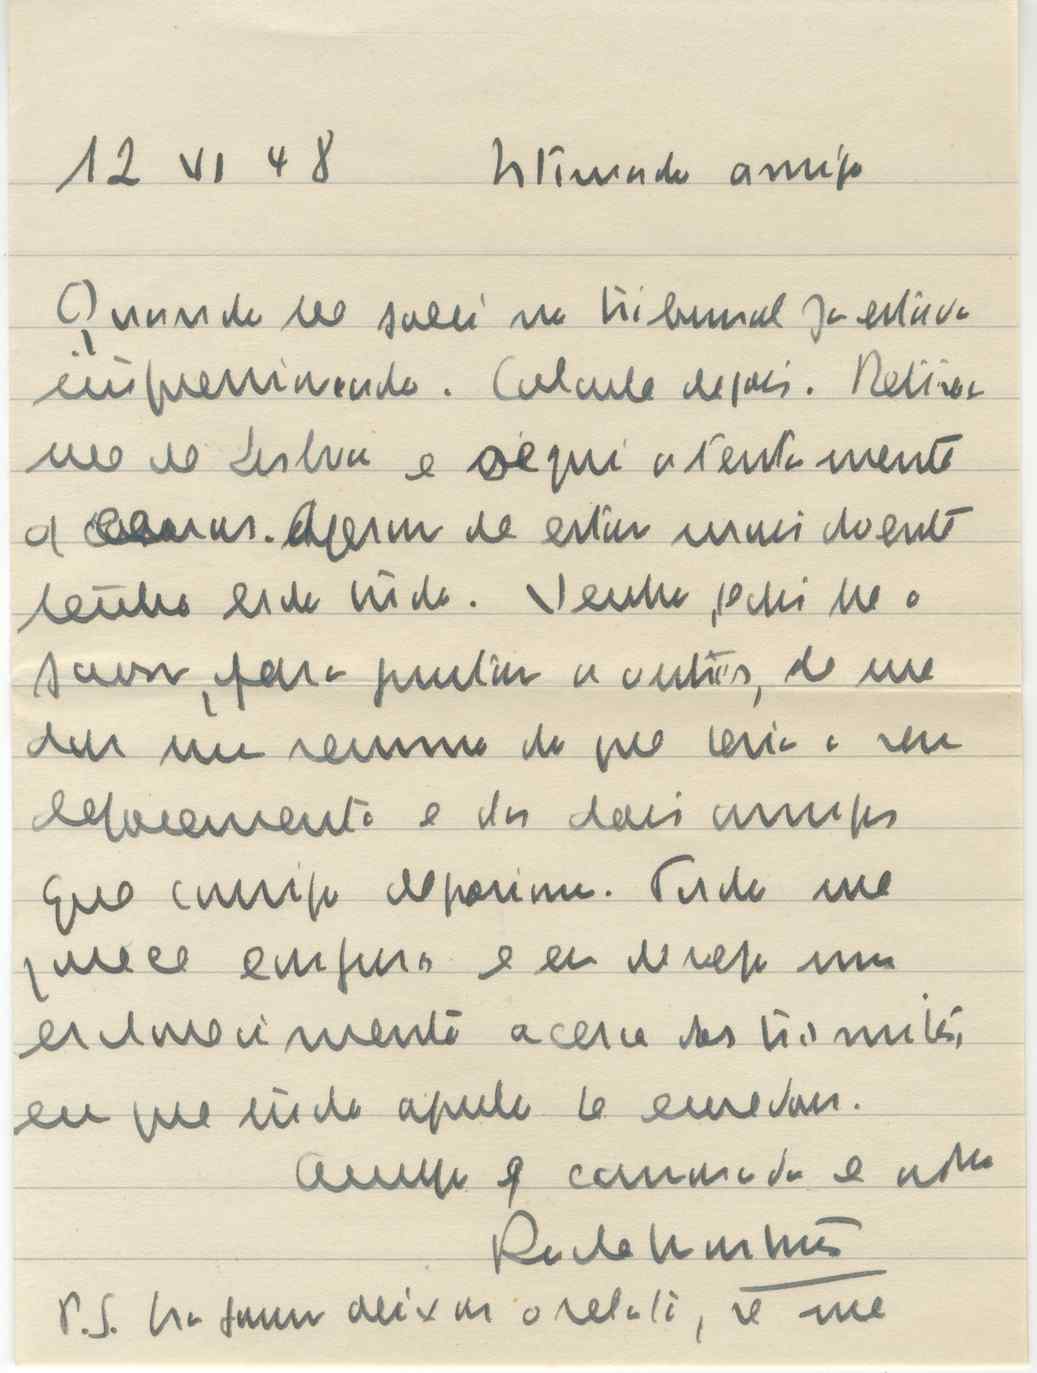 12 VI 48 Estimado amigo
Quando lhe falei no tribunal já estava
impressionado. Calcule depois. Retirei
me de Lisboa e segui atentamente
a causa. Apesar de estar mais doente
tenho lido tudo. Venho pedir lhe o
favor, para juntar a outros, de me
dar um resumo do que seria o seu
depoimento e dos dois amigos
que consigo depunham. Tudo me
parece e eu desejo um
esclarecimento acerca dos trâmites,
em que tudo aquilo se enredou.
Amigo e camarada e adm
P.S. Para deixar o relato, se me